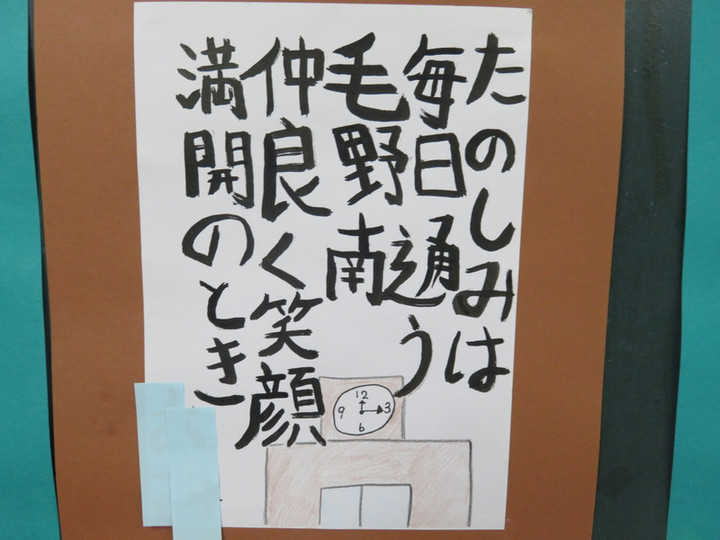 たのしみは
毎日通う
毛野南
仲良く笑顔
満開のとき
12
9 3
6